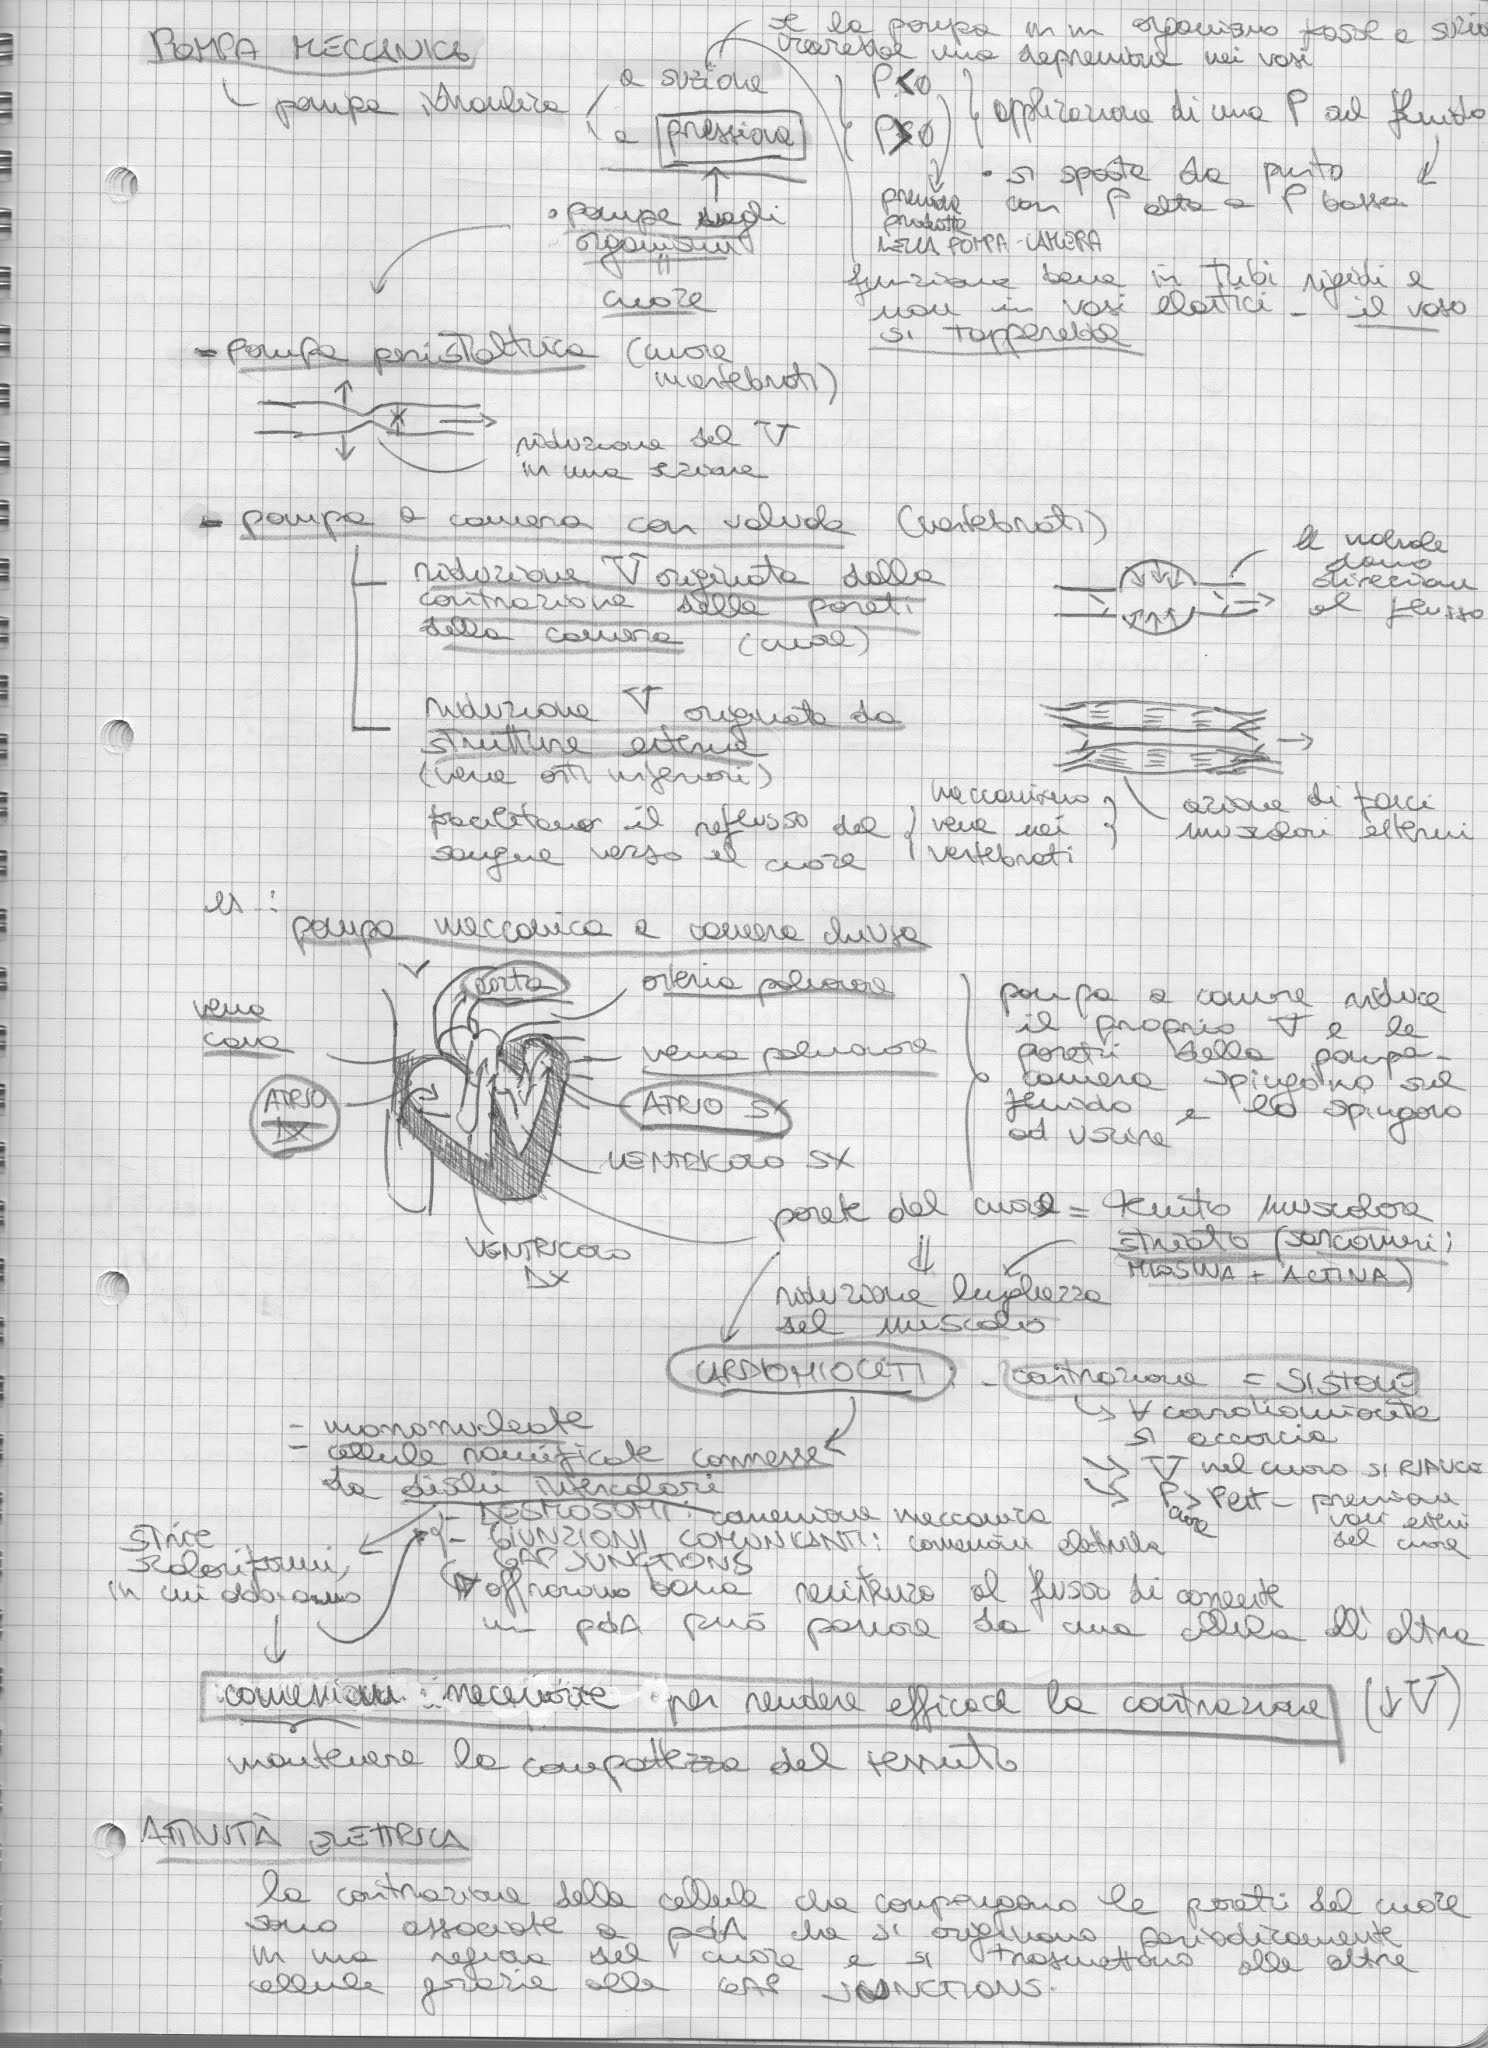 POMPA MECCANICA
pompa idraulica
a suzione
a pressione
se la pompa in un organismo fosse a suzio
creerebbe una depressione nei vasi
P<0
P>0
applicazione di una P ad fluido
• si sposta da punto
con P alta a P bassa
pressione
prodotta
NELLA POMPA-CAMERA
• pompe degli
organismi
=
cuore
funziona bene in tubi rigidi e
non in vasi elastici - il vaso
si tapperebbe
- pompa peristaltica (cuore
invertebrati)
riduzione del V
in una sezione
- pompa a camera con valvole (vertebrati)
riduzione V originata dalla
contrazione delle pareti
della camera (cuore)
le valvole
danno
direzione
al flusso
riduzione V originata da
strutture esterne
(vene arti inferiori)
facilitano il reflusso del
sangue verso il cuore
meccanismo
vene nei
vertebrati
azione di fasci
muscolari esterni
es:
pompa meccanica a camera chiusa
vena
cava
aorta
arteria polmonare
vena polmonare
ATRIO
DX
ATRIO SX
VENTRICOLO SX
VENTRICOLO
DX
pompa a camera riduce
il proprio V e le
pareti della pompa-
camera spingono sul
fluido e lo spingono
ad uscire
parete del cuore = tessuto muscolare
striato (sarcomeri:
MIOSINA + ACTINA)
riduzione lunghezza
del muscolo
CARDIOMIOCITI: - contrazione = SISTOLE
↳ ∀ cardiomiocita
si accorcia
↳ V nel cuore SI RIDUCE
↳ P cuore > Pest - pressione
vasi esterni
del cuore
- mononucleate
- cellule ramificate connesse
da dischi intercalari
- DESMOSOMI: connessione meccanica
- GIUNZIONI COMUNICANTI: connessioni elettriche
GAP JUNCTIONS
offrono bassa resistenza al flusso di corrente
un pdA può passare da una cellula all'altra
strie
scalariformi,
in cui abbiamo
connessioni necessarie per rendere efficace la contrazione (↓V)
mantenere la compattezza del tessuto
ATTIVITÀ ELETTRICA
la contrazione delle cellule che compongono le pareti del cuore
sono associate a pdA che si originano periodicamente
in una regione del cuore e si trasmettono alle altre
cellule grazie alle GAP JUNCTIONS.